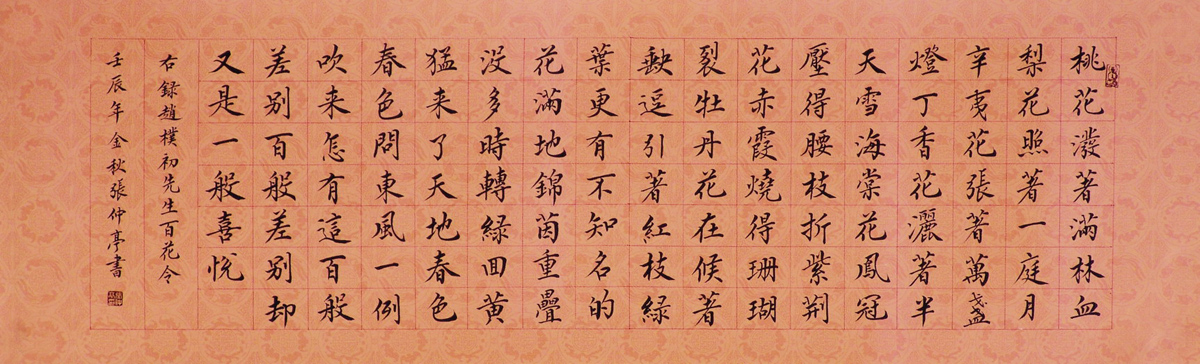 桃花潑著滿林血
梨花照著一庭月
辛夷花張著萬盞
燈丁香花灑著半
天雪海棠花鳳冠
壓得腰枝折紫荆
花赤霞燒得珊瑚
裂牡丹花在候著
逗引著紅枝綠
葉更有不知名的
花滿地錦茵重疊
没多時轉綠回黄
猛来了天地春色
春色問東風一例
吹来怎有這百般
差别百般差别却
又是一般喜悅
右録趙樸初先生百花令
壬辰年金秋張仲亭書